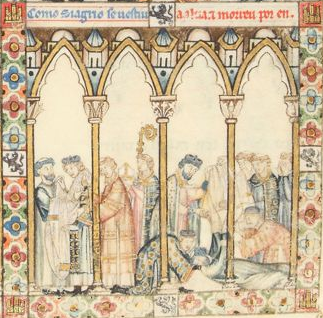 Como siagrio se vestiu a alva ⁊ morreu por en.